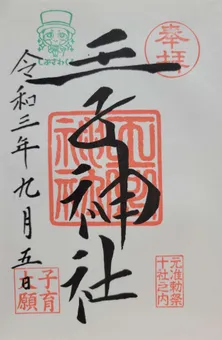 奉拝
元准勅祭
十社之内
王子神社
王子
神社
令和三年九月五日
子育
願